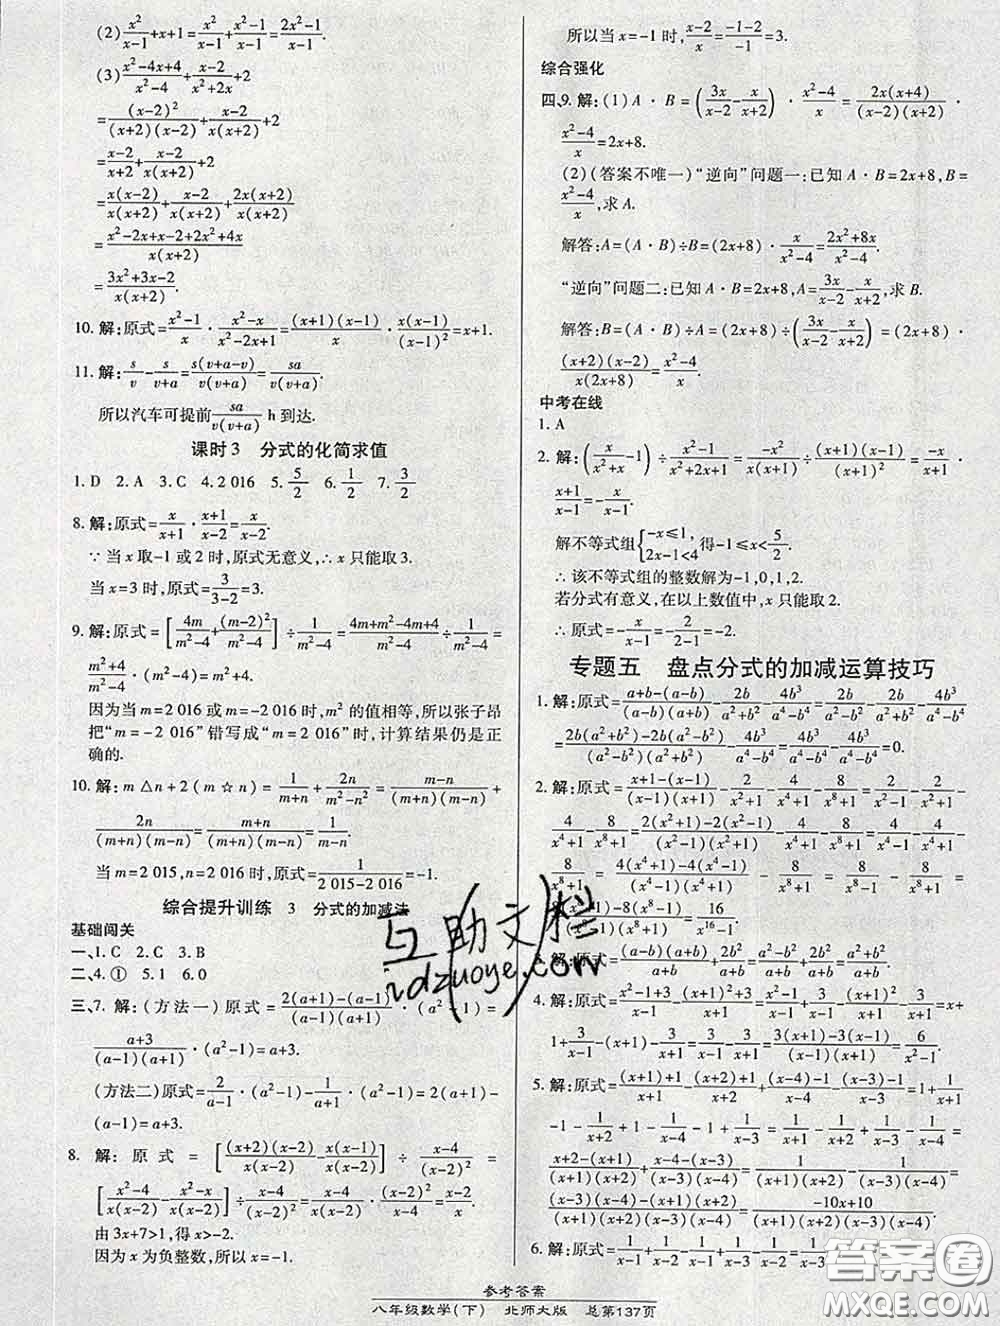 (2) x²/(x-1)+x+1=x²/(x-1)+(x²-1)/(x-1)=(2x²-1)/(x-1).
(3) (x²-4x+4)/(x²-4)+(x-2)/(x²+2x)+2
=(x-2)²/((x+2)(x-2))+(x-2)/(x(x+2))+2
=(x-2)/(x+2)+(x-2)/(x(x+2))+2
=x(x-2)/(x(x+2))+(x-2)/(x(x+2))+2x(x+2)/(x(x+2))
=(x²-2x+x-2+2x²+4x)/(x(x+2))
=(3x²+3x-2)/(x(x+2)).
10. 解:原式=(x²-1)/x·(x²-x)/(x²-2x+1)=(x+1)(x-1)/x·x(x-1)/(x-1)²=x+1.
11. 解:s/v-s/(v+a)=s(v+a-v)/(v(v+a))=sa/(v(v+a)).
所以汽车可提前sa/(v(v+a)) h 到达.
课时3 分式的化简求值
1. D 2. A 3. C 4. 2 016 5. 5/2 6. 1/2 7. 3/2
8. 解:原式=x/(x+1)·(x+1)/(x-2)=x/(x-2).
∵ 当 x 取-1或2时,原式无意义,∴ x 只能取3.
当 x=3 时,原式=3/(3-2)=3.
9. 解:原式=[4m/(m²-4)+(m-2)²/(m²-4)]÷1/(m²-4)=(4m+m²-4m+4)/(m²-4)÷1/(m²-4)=
(m²+4)/(m²-4)·(m²-4)=m²+4.
因为当 m=2 016 或 m=-2 016时,m² 的值相等,所以张子昂
把“m=-2 016”错写成“m=2 016”时,计算结果仍是正
确的.
10. 解:m△n+2(m☆n)=1/(m+n)+2n/(m²-n²)=(m-n)/((m+n)(m-n))+
2n/((m+n)(m-n))=(m+n)/((m+n)(m-n))=1/(m-n).
当 m=2 015,n=2 016 时,原式=1/(2 015-2 016)=-1.
综合提升训练 3 分式的加减法
基础闯关
一、1. C 2. C 3. B
二、4. ① 5. 1 6. 0
三、7. 解:(方法一)原式=(2(a+1)-(a-1))/((a-1)(a+1))·(a²-1)=
(a+3)/((a-1)(a+1))·(a²-1)=a+3.
(方法二)原式=2/(a-1)·(a²-1)-1/(a+1)·(a²-1)=2(a+1)
-(a-1)=a+3.
8. 解:原式=[(x+2)(x-2)/(x(x-2))-x(x-1)/(x(x-2))]÷(x-4)/(x-2)²=
[(x²-4)/(x(x-2))-(x²-x)/(x(x-2))]÷(x-4)/(x-2)²=(x-4)/(x(x-2))·(x-2)²/(x-4)=(x-2)/x.
由 3x+7>1,得 x>-2.
因为 x 为负整数,所以 x=-1.
所以当 x=-1 时,(x-2)/x=(-1-2)/-1=3.
综合强化
四、9. 解:(1)A·B=(3x/(x-2)-x/(x+2))·(x²-4)/x=2x(x+4)/((x-2)(x+2))·
(x²-4)/x=2x+8.
(2)(答案不唯一)“逆向”问题一:已知 A·B=2x+8,B=
(x²-4)/x,求 A.
解答:A=(A·B)÷B=(2x+8)·x/(x²-4)=(2x²+8x)/(x²-4).
“逆向”问题二:已知 A·B=2x+8,A=3x/(x-2)-x/(x+2),求 B.
解答:B=(A·B)÷A=(2x+8)÷(3x/(x-2)-x/(x+2))=(2x+8)·
(x+2)(x-2)/(x(2x+8))=(x²-4)/x.
中考在线
1. A
2. 解:(x/(x²+x)-1)÷(x²-1)/(x²+2x+1)=-x²/(x(x+1))÷(x+1)(x-1)/(x+1)²=-x/(x+1)·
(x+1)/(x-1)=-x/(x-1).
解不等式组{-x≤1, 2x-1<4得-1≤x<5/2.
∴ 该不等式组的整数解为-1,0,1,2.
若分式有意义,在以上数值中,x 只能取 2.
∴ 原式=-x/(x-1)=-2/(2-1)=-2.
专题五 盘点分式的加减运算技巧
1. 解:原式=(a+b-(a-b))/((a-b)(a+b))-2b/(a²+b²)-4b³/(a⁴-b⁴)=2b/(a²-b²)-2b/(a²+b²)-4b³/(a⁴-b⁴)
=(2b(a²+b²)-2b(a²-b²))/((a²-b²)(a²+b²))-4b³/(a⁴-b⁴)=4b³/(a⁴-b⁴)-4b³/(a⁴-b⁴)=0.
2. 解:原式=(x+1-(x-1))/((x-1)(x+1))-2/(x²+1)-4/(x⁴+1)-8/(x⁸+1)=2/(x²-1)-2/(x²+1)-
4/(x⁴+1)-8/(x⁸+1)=(2(x²+1)-2(x²-1))/((x²-1)(x²+1))-4/(x⁴+1)-8/(x⁸+1)=4/(x⁴-1)-4/(x⁴+1)-
8/(x⁸+1)=(4(x⁴+1)-4(x⁴-1))/((x⁴-1)(x⁴+1))-8/(x⁸+1)=8/(x⁸-1)-8/(x⁸+1)=
+1)-8(x⁸-1)/(x⁸+1)=16/(x¹⁶-1).
解:原式=(a-b)(a+b)/(a+b)+(a²+b²)/(a+b)=(a²-b²+a²+b²)/(a+b)=2a²/(a+b).
4. 解:原式=(x²-1+3)/(x-1)-((x+1)²+3)/(x+1)=(x²-1)/(x-1)+3/(x-1)-(x+1)²/(x+1)-3/(x+1)=x+
1+3/(x-1)-(x+1)-3/(x+1)=3/(x-1)-3/(x+1)=(3(x+1)-3(x-1))/((x-1)(x+1))=6/(x²-1).
5. 解:原式=((x+1)+1)/(x+1)-((x+2)+1)/(x+2)+((x-4)-1)/(x-4)-((x-3)-1)/(x-3)=1+1/(x+1)
-1-1/(x+2)+1-1/(x-4)-1+1/(x-3)=1/(x+1)-1/(x+2)-1/(x-4)+1/(x-3)=
(x+2-(x+1))/((x+1)(x+2))+(x-4-(x-3))/((x-3)(x-4))=1/((x+1)(x+2))-1/((x-3)(x-4))=
((x-3)(x-4)-(x+1)(x+2))/((x+1)(x+2)(x-3)(x-4))=(-10x+10)/((x+1)(x+2)(x-3)(x-4)).
6. 解:原式=1/(x-1)-1/x+1/x-1/(x+1)+1/(x+1)-
参考答案
八年级数学(下) 北师大版 总第137页
互助文栏
idzuoye.com
答案圈
MXQE.COM